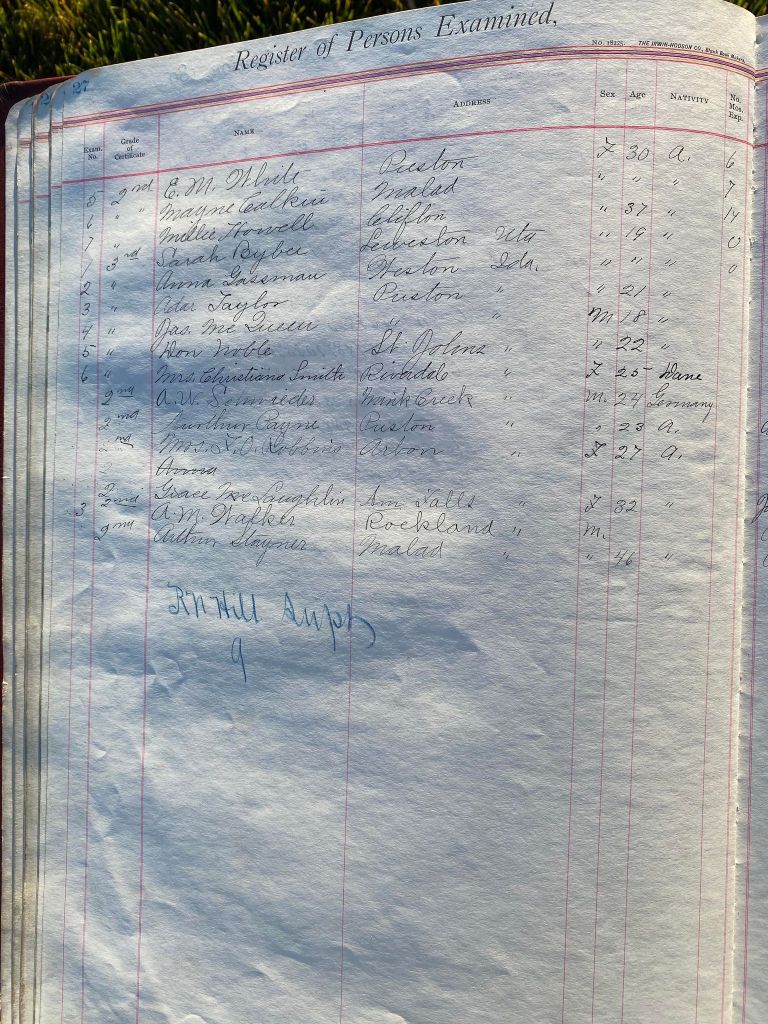 27
Register of Persons Examined,
No. 18225. THE IRWIN-HODSON CO., Blank Book Makers,
Exam. No. Grade of Certificate NAME ADDRESS Sex Age NATIVITY No. Mos. Exp.
5 2nd E. M. White Preston F 30 A. 6
6 " " Mayne Calkin Malad " " " 7
7 " Millie Howell Clifton " 37 " 14
1 3rd Sarah Bybee Lewiston Uta " 19 " 0
2 " Anna Gassman Weston Ida. " " " 0
3 " Adar Taylor Preston " " 21 "
4 " Jas. McQueen " " M 18 "
5 " Don Noble St. Johns " " 22 "
6 " Mrs. Christiana Smith Riverdale " F 25 Dane
2nd A. W. Mink Creek " M. 24 Germany
2nd Arthur Payne Preston " " 23 A.
2nd Mrs. F. D. Robbins Arbon " F 27 A.
Anna
2 Grace McLaughlin Am Falls " F 32 "
3 2nd A. M. Walker Rockland " M.
2nd Arthur Stayner Malad " " 46 "
RN Hill Supt
9